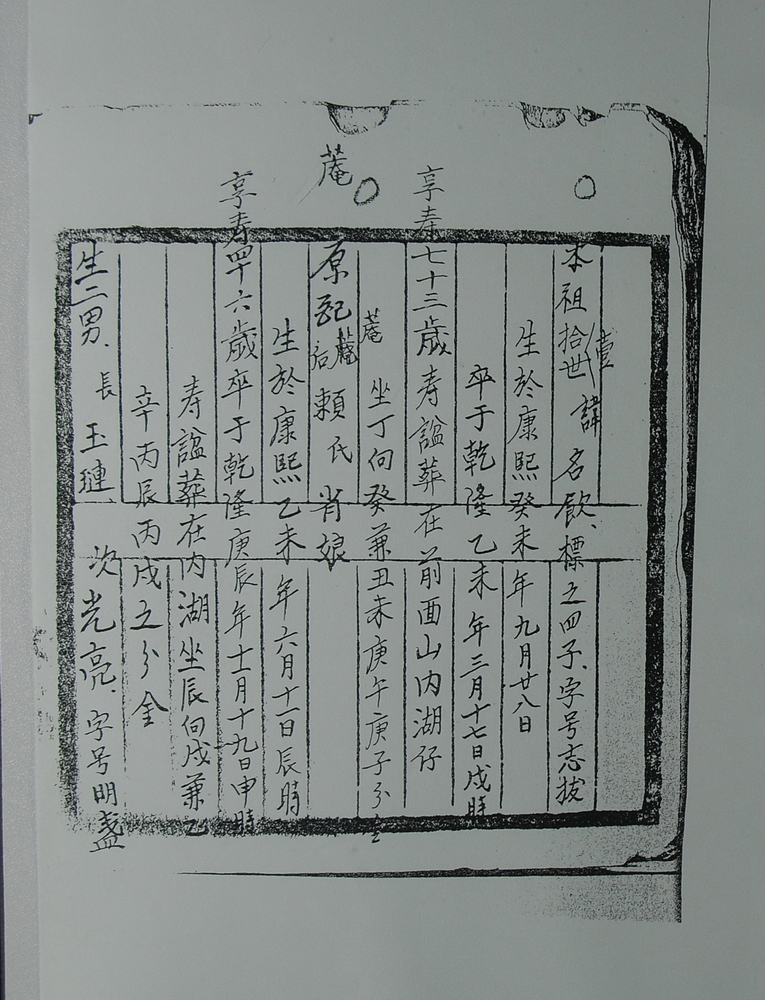 本祖拾壹世諱名欽、標之四子、字号志拔
生於康熙癸未年九月廿八日
卒于乾隆乙未年三月十七日戌時
享寿七十三歳寿諡葬在前面山内湖仔
坐丁向癸兼丑未庚午庚子分金
菴
菴
原配 后 賴氏 肖娘
生於康熙乙未年六月十一日辰時
享寿四十六歳卒于乾隆庚辰年十二月十九日申時
寿諡葬在内湖坐辰向戌兼乙
辛丙辰丙戌之分金
生二男、長玉璉 次光亮、字号明盞